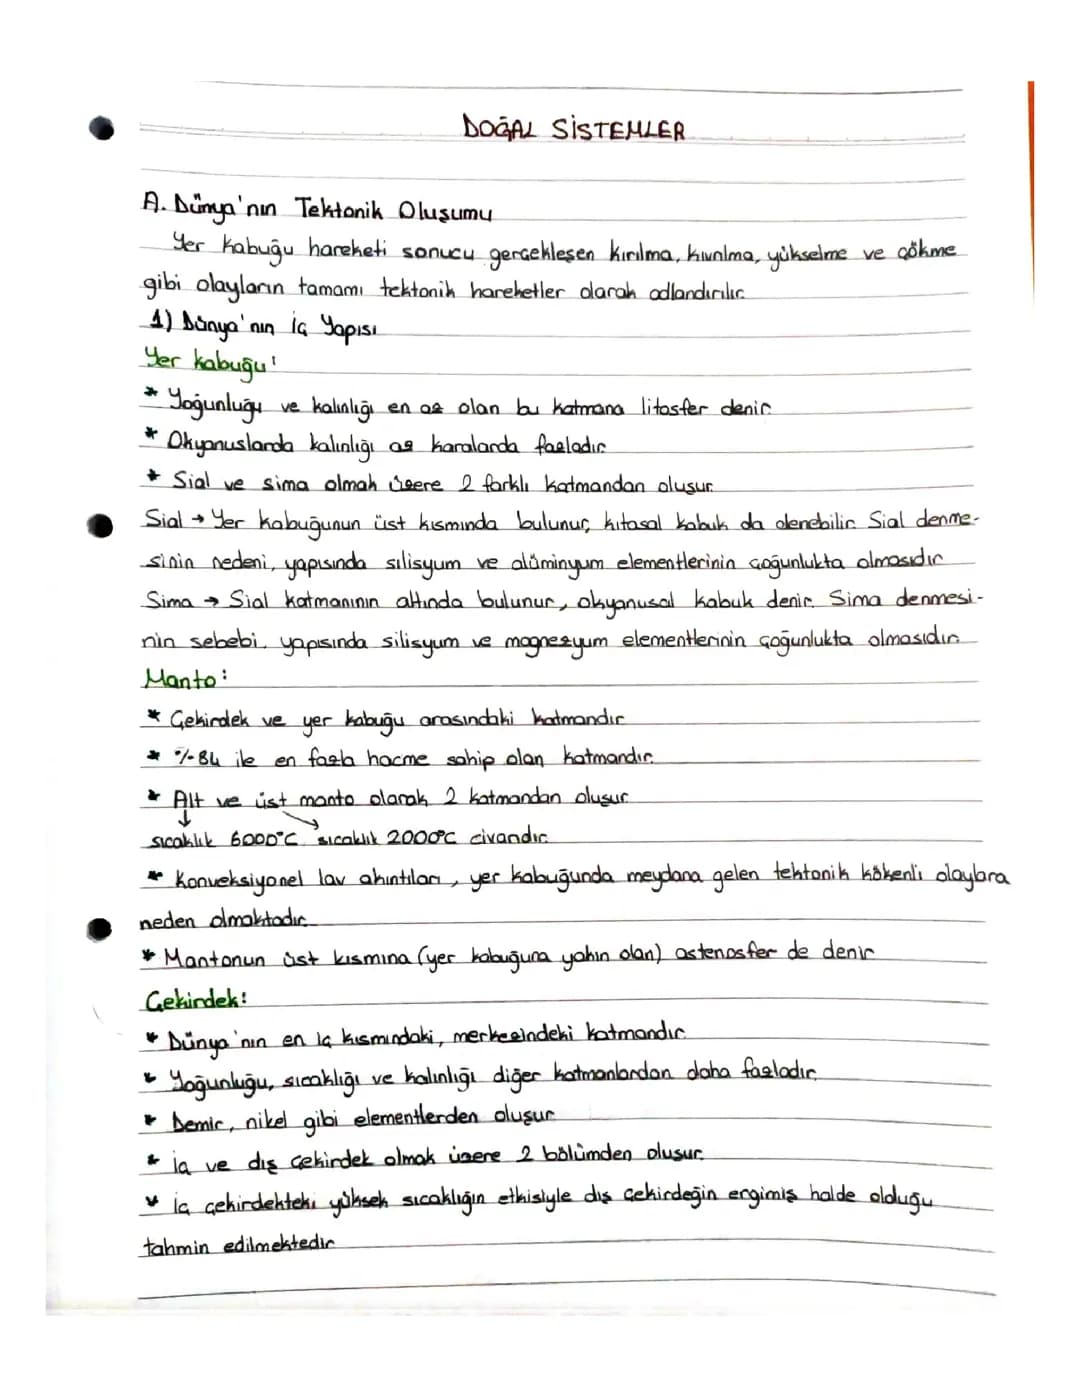 DOĞAL SİSTEMLER
A. Dünya'nın Tektonik Oluşumu
Yer kabuğu hareketi sonucu gerçekleşen kırılma, kıvrılma, yükselme ve çökme
gibi olayların tamamı tektonik hareketler olarak adlandırılır.
1) Dünya'nın İç Yapısı
Yer kabuğu:
* Yoğunluğu ve kalınlığı en az olan bu katmana litosfer denir.
* Okyanuslarda kalınlığı az karalarda fazladır.
* Sial ve sima olmak üzere 2 farklı katmandan oluşur.
Sial → Yer kabuğunun üst kısmında bulunur, kıtasal kabuk da denebilir. Sial denme-
sinin nedeni, yapısında silisyum ve alüminyum elementlerinin çoğunlukta olmasıdır.
Sima → Sial katmanının altında bulunur, okyanusal kabuk denir. Sima denmesi-
nin sebebi, yapısında silisyum ve magnezyum elementlerinin çoğunlukta olmasıdır.
Manto:
* Çekirdek ve yer kabuğu arasındaki katmandır.
* %84 ile en fazla hacme sahip olan katmandır.
* Alt ve üst manto olarak 2 katmandan oluşur.
↓ ↘
sıcaklık 6000°C sıcaklık 2000°C civarıdır.
* Konveksiyonel lav akıntıları, yer kabuğunda meydana gelen tektonik kökenli olaylara
neden olmaktadır.
* Mantonun üst kısmına (yer kabuğuna yakın olan) astenosfer de denir
Çekirdek:
* Dünya'nın en iç kısmındaki, merkezindeki katmandır.
* Yoğunluğu, sıcaklığı ve kalınlığı diğer katmanlardan daha fazladır.
* Demir, nikel gibi elementlerden oluşur.
* İç ve dış çekirdek olmak üzere 2 bölümden oluşur.
* İç çekirdekteki yüksek sıcaklığın etkisiyle dış çekirdeğin ergimiş halde olduğu
tahmin edilmektedir